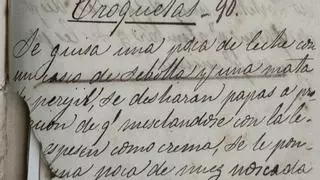 Croquetas - 90.
Se guisa una poca de leche con
un casco de sebolla y una mata
perejil, se desharan papas a pro
cion de q.e mesclandose con la le
espesen como crema, se le pon
una poca de nuez noscada